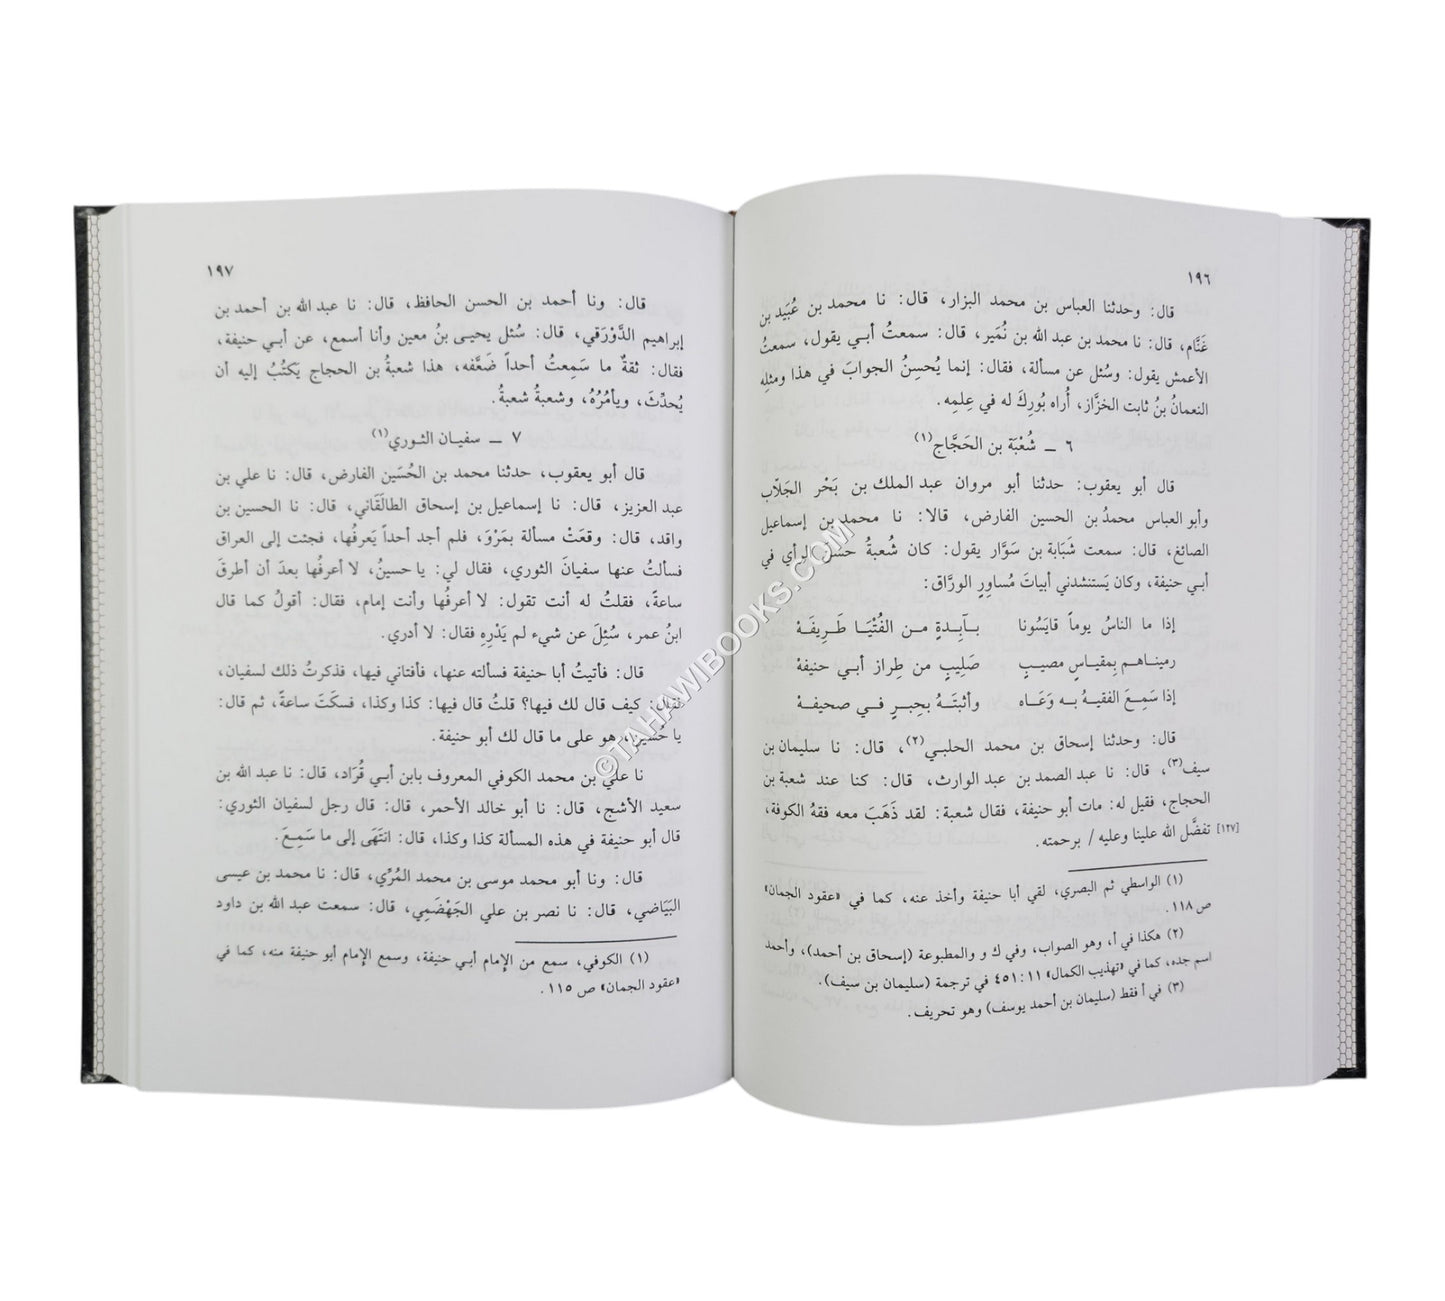 ١٩٦
قال: وحدثنا العباس بن محمد البزار، قال: نا محمد بن عُبَيد بن
غَنَّام، قال: نا محمد بن عبد الله بن نُمَير، قال: سمعتُ أبي يقول، سمعتُ
الأعمش يقول: وسُئل عن مسألة، فقال: إنما يُحسِنُ الجوابَ في هذا ومثلِه
النعمانُ بنُ ثابت الخزَّاز، أُراه بُورِكَ له في عِلمِه.
٦ ــ شُعْبَة بن الحَجَّاج(١)
قال أبو يعقوب: حدثنا أبو مروان عبد الملك بن بَحْر الجَلَّاب
وأبو العباس محمدُ بن الحسين الفارض، قالا: نا محمد بن إسماعيل
الصائغ، قال: سمعت شَبَابة بن سَوَّار يقول: كان شُعبةُ حسَنَ الرأي في
أبي حنيفة، وكان يَستنشدني أبياتَ مُساوِرٍ الورَّاق:
إذا ما الناسُ يوماً قايَسُونا بـآبِـدةٍ مـن الفُتْيَـا طَـرِيفَـهْ
رميناهـم بِمقياسٍ مصيبٍ صَلِيبٍ من طِراز أبـي حنيفهْ
إذا سَمِـعَ الفقيـهُ بـه وَعَـاه وأثبتَـهُ بـحِبـرٍ فـي صحيفهْ
قال: وحدثنا إسحاق بن محمد الحلبـي(٢)، قال: نا سليمان بن
سيف(٣)، قال: نا عبد الصمد بن عبد الوارث، قال: كنا عند شعبة بن
الحجاج، فقيل له: مات أبو حنيفة، فقال شعبة: لقد ذَهَبَ معه فقهُ الكوفة،
[١٢٧] تفضَّل الله علينا وعليه / برحمته.
(١) الواسطي ثم البصري، لقي أبا حنيفة وأخذ عنه، كما في «عقود الجمان»
ص ١١٨.
(٢) هكذا في أ، وهو الصواب، وفي ك و والمطبوعة (إسحاق بن أحمد)، وأحمد
اسم جده، كما في «تهذيب الكمال» ١١: ٤٥١ في ترجمة (سليمان بن سيف).
(٣) في أ فقط (سليمان بن أحمد يوسف) وهو تحريف.
١٩٧
قال: ونا أحمد بن الحسن الحافظ، قال: نا عبد الله بن أحمد بن
إبراهيم الدَّوْرَقي، قال: سُئل يحيـى بنُ معين وأنا أسمع، عن أبـي حنيفة،
فقال: ثقةٌ ما سَمِعتُ أحداً ضَعَّفه، هذا شعبةُ بن الحجاج يَكتُبُ إليه أن
يُحدِّثَ، ويأمُرُهُ، وشعبةُ شعبةُ.
٧ ــ سفيـان الثـوري(١)
قال أبو يعقوب، حدثنا محمد بن الحُسَين الفارض، قال: نا علي بن
عبد العزيز، قال: نا إسماعيل بن إسحاق الطالَقَاني، قال: نا الحسين بن
واقد، قال: وقعَتْ مسألة بمَرْوَ، فلم أجد أحداً يَعرفُها، فجئت إلى العراق
فسألتُ عنها سفيانَ الثوري، فقال لي: يا حسينُ، لا أعرفُها بعدَ أن أطرقَ
ساعةً، فقلتُ له أنت تقول: لا أعرفُها وأنت إمام، فقال: أقولُ كما قال
ابنُ عمر، سُئِلَ عن شيء لم يَدْرِه فقال: لا أدري.
قال: فأتيتُ أبا حنيفة فسألته عنها، فأفتاني فيها، فذكرتُ ذلك لسفيان،
فقال: كيف قال لك فيها؟ قلتُ قال فيها: كذا وكذا، فسكَتَ ساعةً، ثم قال:
يا حُسَين، هو على ما قال لك أبو حنيفة.
نا علي بن محمد الكوفي المعروف بابن أبي قُرَاد، قال: نا عبد الله بن
سعيد الأشج، قال: نا أبو خالد الأحمر، قال: قال رجل لسفيان الثوري:
قال أبو حنيفة في هذه المسألة كذا وكذا، قال: انتَهَى إلى ما سَمِعَ.
قال: ونا أبو محمد موسى بن محمد المُرِّي، قال: نا محمد بن عيسى
البَيَاضي، قال: نا نصر بن علي الجَهْضَمِي، قال: سمعت عبد الله بن داود
(١) الكوفي، سمع من الإمام أبي حنيفة، وسمع الإمام أبو حنيفة منه، كما في
«عقود الجمان» ص ١١٥.
©TAHAWIBOOKS.COM